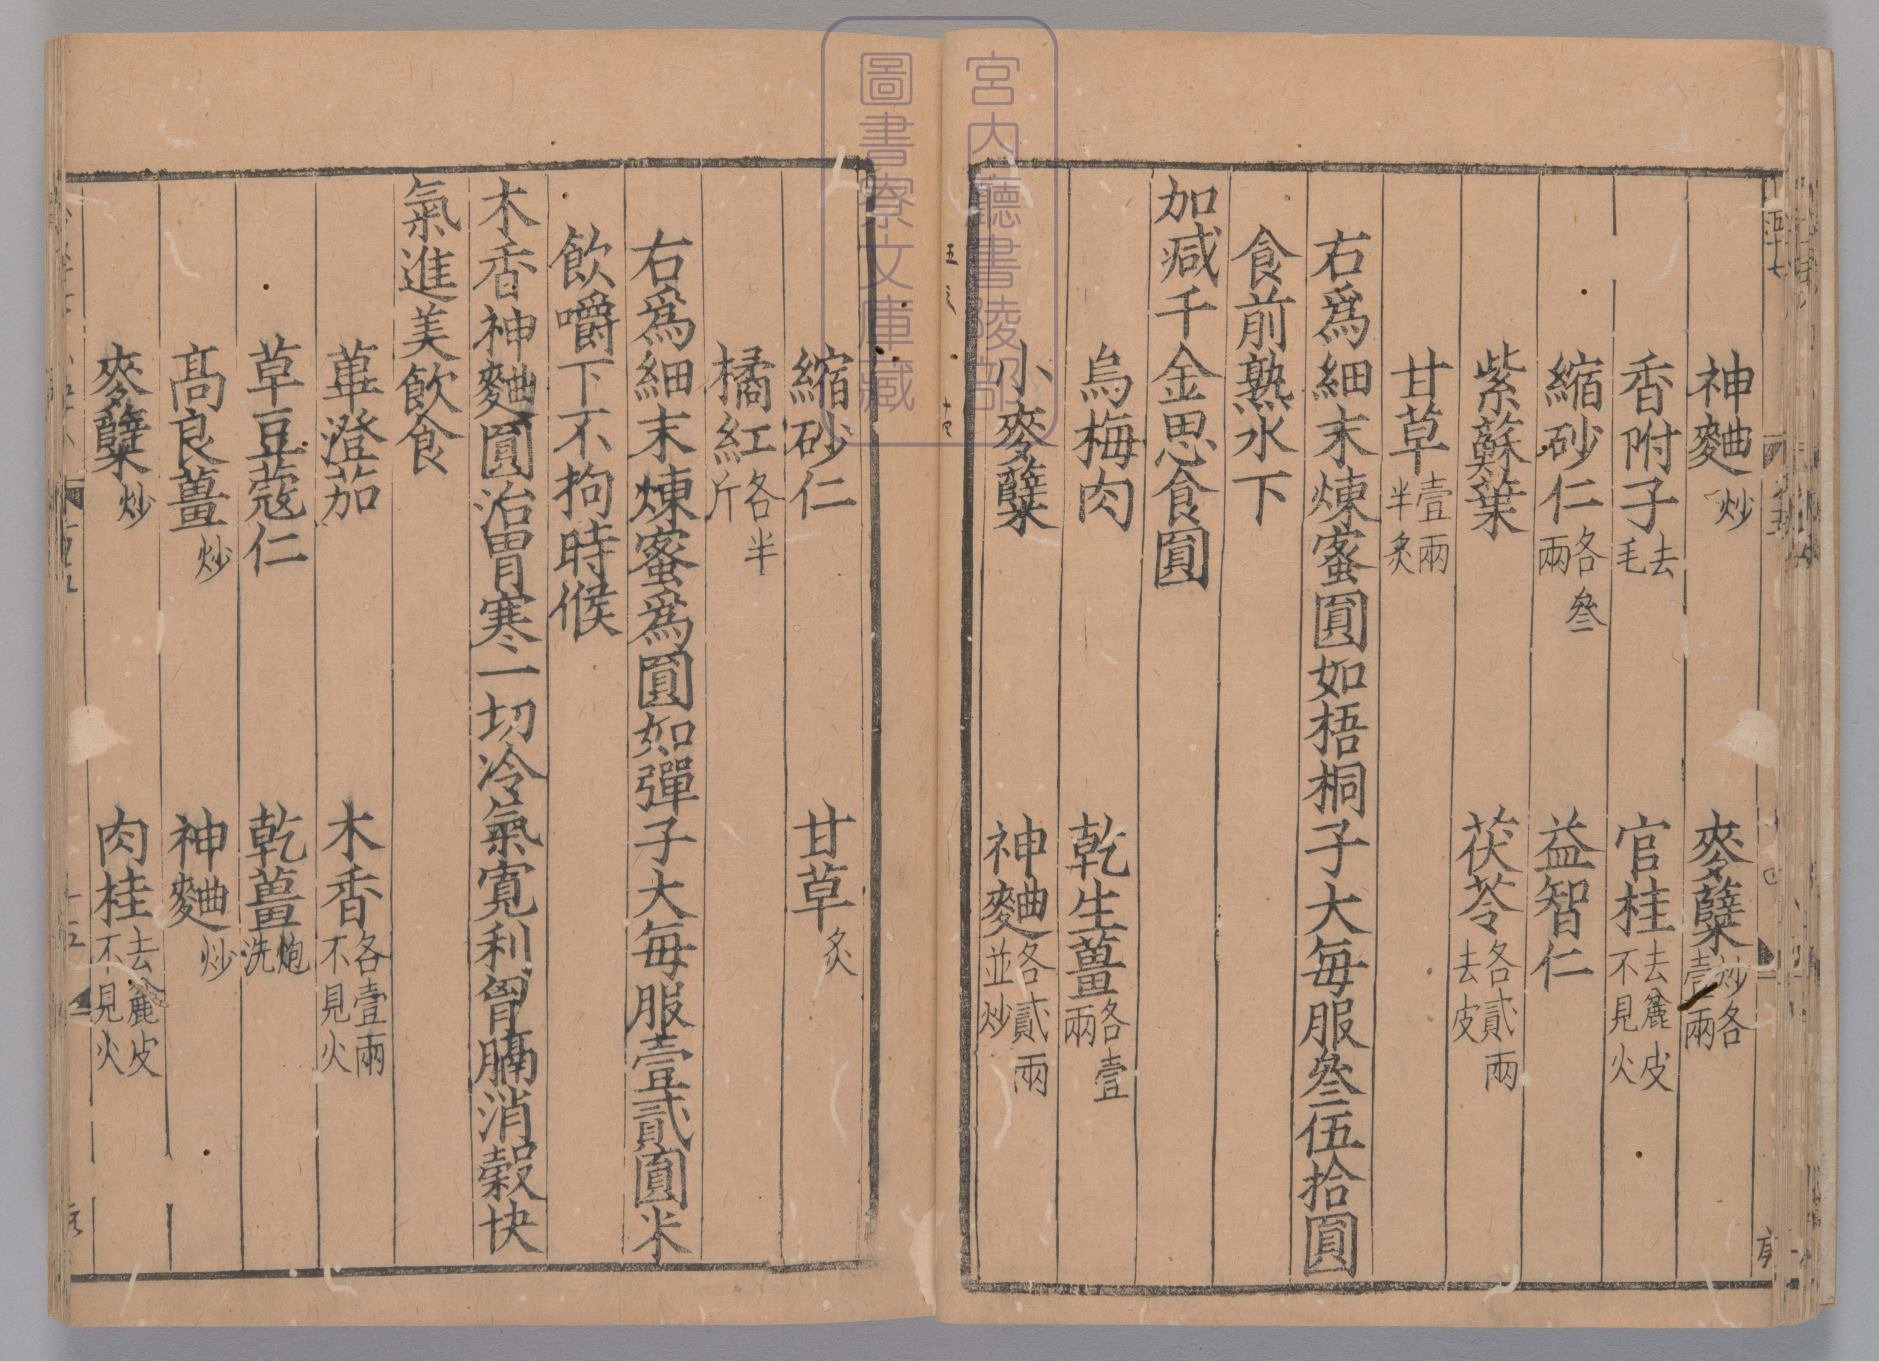 神麯炒 麥糵炒各壹兩
香附子去毛 官桂去麄皮不見火
縮砂仁各叄兩 益智仁
紫蘇葉 茯苓各貳兩去皮
甘草壹兩半炙
右爲細末煉蜜圓如梧桐子大每服叄伍拾圓
食前熟水下
加减千金思食圓
烏梅肉 乾生薑各壹兩
小麥糵 神麯各貳兩並炒
縮砂仁 甘草炙
橘紅各半斤
右爲細末煉蜜爲圓如彈子大每服壹貳圓米
飲嚼下不拘時候
木香神麯圓治胃寒一切冷氣寛利胷膈消穀快
氣進美飲食
蓽澄茄 木香各壹兩不見火
草豆蔻仁 乾薑炮洗
高良薑炒 神麯炒
麥糵炒 肉桂去麄皮不見火
宮内廳書陵部
圖書寮文庫藏